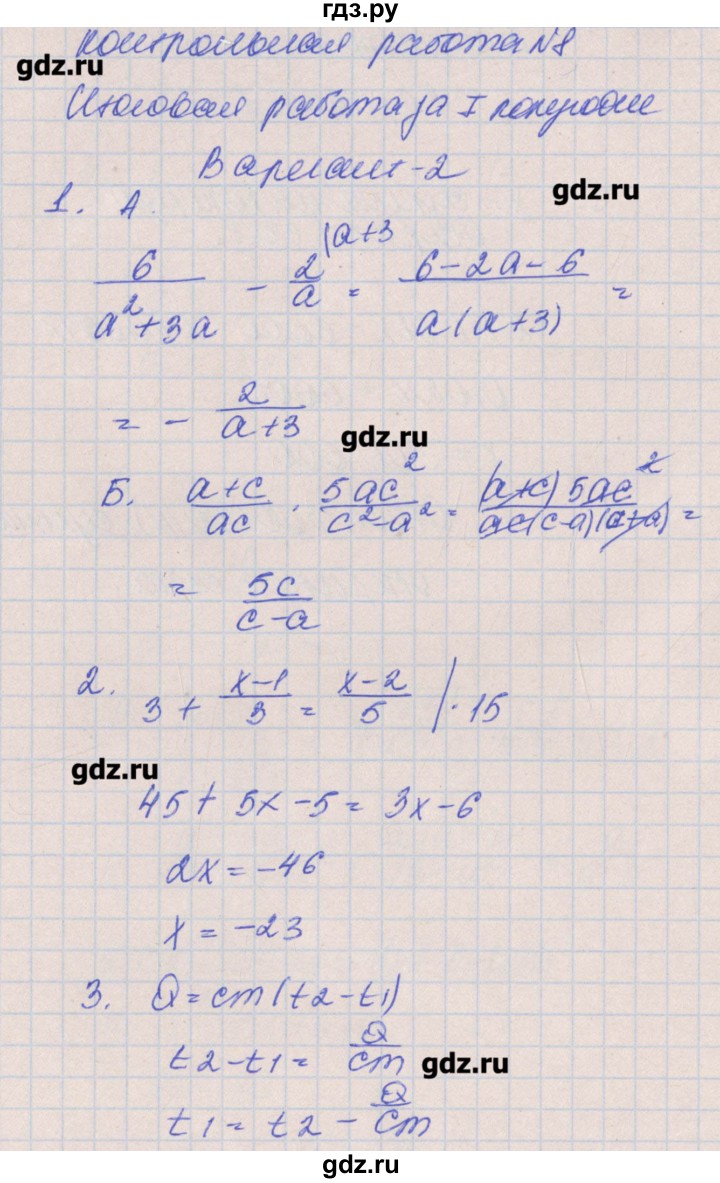 гдз.ру
Контрольная работа №8
gdz.ru
Итоговая работа за I полугодие
Вариант-2
gdz.ru
1. А.
6/(a²+3a) - 2/a |a+3 = (6-2a-6)/(a(a+3)) =
= - 2/(a+3)
gdz.ru
Б. (a+c)/(ac) · 5ac²/(c²-a²) = ((a+c)5ac²)/(ac(c-a)(c+a)) =
= 5c/(c-a)
2. 3 + (x-1)/3 = (x-2)/5 |·15
gdz.ru
45 + 5x - 5 = 3x - 6
2x = -46
x = -23
3. Q = cm(t2-t1)
t2-t1 = Q/cm
gdz.ru
t1 = t2 - Q/cm
gdz.ru